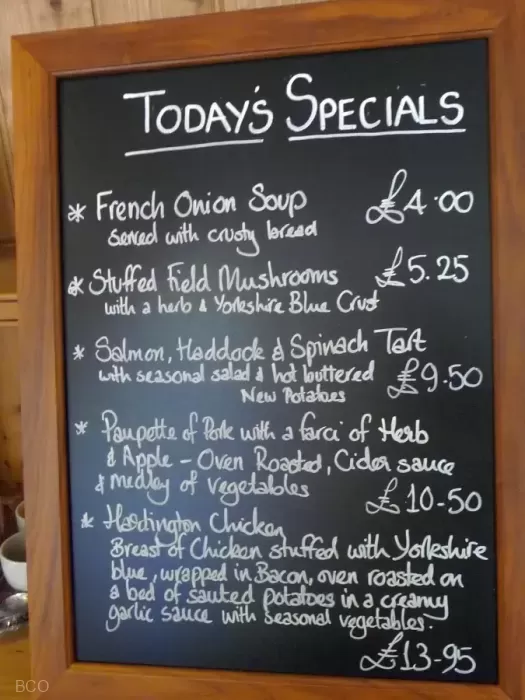 TODAY'S SPECIALS
* French Onion Soup £4.00
Served with crusty bread
* Stuffed Field Mushrooms £5.25
with a herb & Yorkshire Blue Crust
* Salmon, Haddock & Spinach Tart
with seasonal salad & hot buttered £9.50
New Potatoes
* Paupette of Pork with a farci of Herb
& Apple - Oven Roasted, Cider sauce
& medley of vegetables £10-50
* Hardington Chicken
Breast of Chicken stuffed with Yorkshire
blue, wrapped in Bacon, oven roasted on
a bed of sauted potatoes in a creamy
garlic sauce with seasonal vegetables.
£13-95
BCO